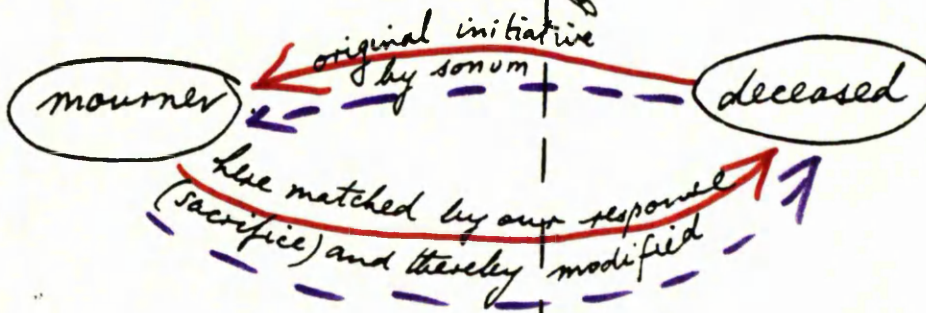 original initiative
by sonum
mourner
deceased
here matched by our response
(sacrifice) and thereby modified